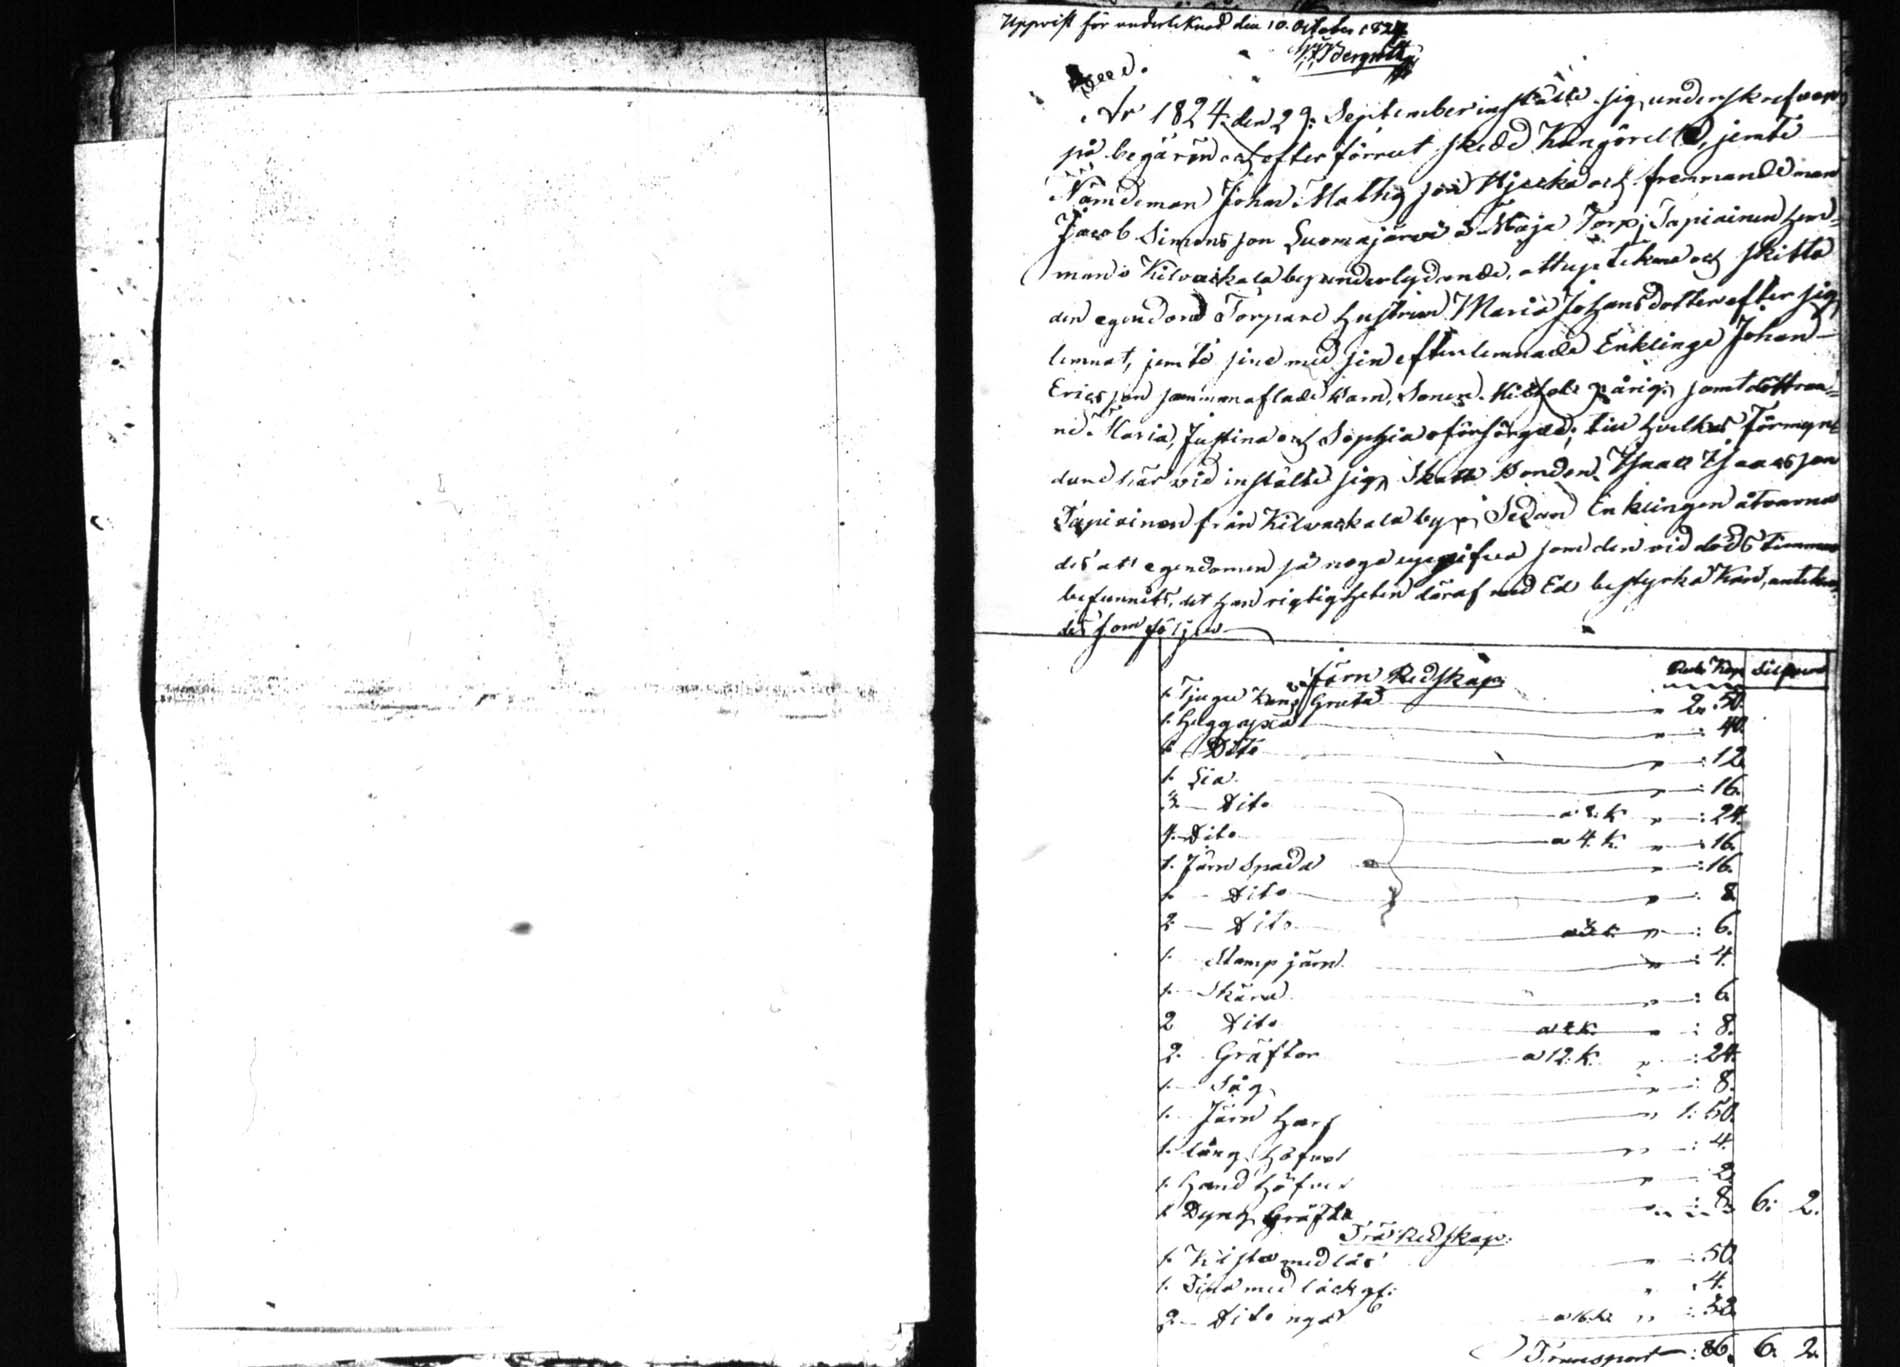 Uppvist för underteknad den 10. October 1827
Bergroth
År 1824. den 29. September instälte sig underskrefven
på begäran och efter förrut skedd Kungörelse, jemte
Nämdeman Johan Mathsson och fremmande man
Jacob Simonsson Suomajärvi å Maja Torp, Tapiainen Hem-
man i Kilvaskala by underlydande, att upteckna och skifta
den egendom Torpare Hustrun Maria Johansdotter efter sig
lemnat, jemte sine med sin efterlemnade Enklinge Johan
Ericsson sammanaflade Barn, Sonen årig, samt döttrar-
ne Maria, Justina och Sophia oförsörgde; till hvilkas Förmyn-
dare här vid instälte sig Skatte Bonden Isaac Isaacsson
Tapiainen från Kilvaskala by; Sedan Enklingen åtvarna-
des att egendomen så noga uppgifva som den vid döds timman
befunnits, det han rigtigheten däraf med Ed bestyrka kan, antekna-
des som följer
Järn Redskap. Rub. Kop. Silfver
1. Tjugu Kans Gruta " 2. 50.
1. Huggyxa " : 40.
1. Dito " : 12.
1. Lia " : 16.
3. Dito a 8. K. " : 24.
4. Dito a 4. K. " : 16.
1. Järn Spada " : 16.
1. Dito " : 8.
2. Dito a 3. K. " : 6.
1. Stamp järn " : 4.
1. Skära " : 6.
2. Dito a 4. K. " : 8.
2. Gräftor a 12. K. " : 24.
1. Såg " : 8.
1. Järn Harf " 1: 50.
1. Lång Höfvel " : 4.
1. Hand Höfvel " : 2.
1. Dyng Gräfta " : 8. 6: 2.
Trä Redskap.
1. Kista med lås " : 50.
1. Tina med lock gl: " : 4.
2. Dito nya a 16. K. " : 32.
Transport : 86. 6. 2.